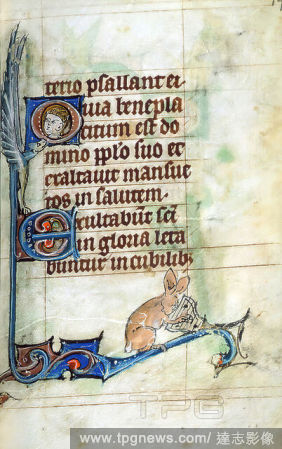 terio psallant ei
Quia benepla
citum est do
mino pplo suo et
exaltavit mansue
tos in salutem.
Exultabūt scī
in gloria leta
buntur in cubilib;
TPG
www.tpgnews.com/ 達志影像